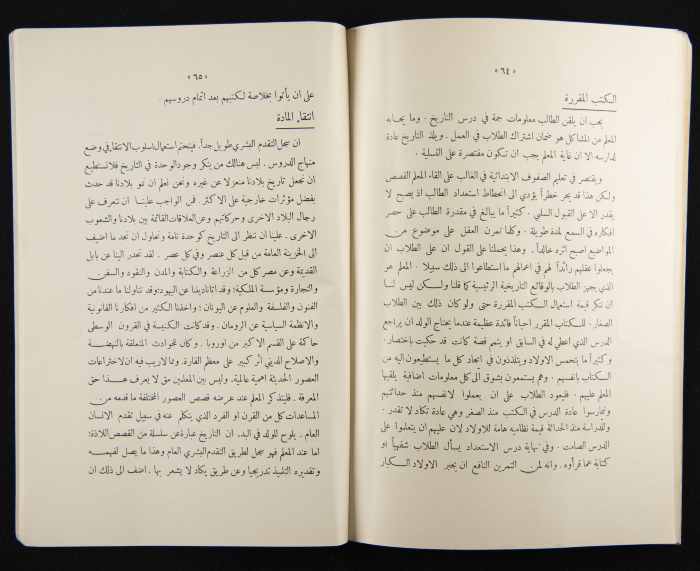 « ٦٤ »
الكتب المقررة
يجب ان يلقن الطالب معلومات جمة في درس التاريخ . وما يجابه
المعلم من المشاكل هو ضمان اشتراك الطلاب في العمل . ويلذ التاريخ عادة
لدارسه الا ان غاية المعلم يجب ان تكون مقتصرة على التسلية .
ويقتصر في تعليم الصفوف الابتدائية في الغالب على القاء المعلم القصص
ولكن هذا قد يجر خطراً يؤدي الى انحطاط استعداد الطالب اذ يصبح لا
يقدر الا على القبول السلبي . كثيراً ما يبالغ في مقدرة الطالب على حصر
افكاره في السمع لمدة طويلة . وكلما تمرن العقل على موضوع من
المواضيع اصبح اثره خالداً . وهذا يحملنا على القول ان على الطلاب ان
يجعلوا عقلهم رائداً لهم في اعمالهم ما استطاعوا الى ذلك سبيلا . المعلم هو
الذي يجهز الطلاب بالوقائع التاريخية الرئيسية كما قلنا ولكن ليس لنا
ان ننكر قيمة استعمال الكتب المقررة حتى ولو كان ذلك بين الطلاب
الصغار . للكتاب المقرر احياناً فائدة عظيمة عندما يحتاج الولد ان يراجع
الدرس الذي اعطي له في السابق او يتمم قصة كانت قد حكيت باختصار .
وكثيراً ما يتحمس الاولاد ويتلذذون في ايجاد كل ما يستطيعون اليه من
الكتاب بانفسهم . وهم يستمعون بشوق الى كل معلومات اضافية يلقيها
المعلم عليهم . فليعود الطلاب على ان يعملوا لانفسهم منذ حداثتهم
وليمارسوا عادة الدرس في الكتب منذ الصغر وهي عادة تكاد لا تقدر .
وللدراسة منذ الحداثة قيمة نظاميه هامة للاولاد لان عليهم ان يتعلموا على
الدرس الصامت . وفي نهاية درس الاستعداد يسأل الطلاب شفهياً او
كتابة عما قرأوه . وانه لمن التمرين النافع ان يجبر الاولاد الكبار
« ٦٥ »
على ان يأتوا بخلاصة لكتبهم بعد اتمام دروسهم .
انتقاء المادة
ان سجل التقدم البشري طويل جداً . فيتحتم استعمال اسلوب الانتقاء في وضع
منهاج الدروس . ليس هنالك من ينكر وجود الوحدة في التاريخ فلا نستطيع
ان نجعل تاريخ بلادنا منعزلا عن غيره ونحن نعلم ان نمو بلادنا قد حدث
بفضل مؤثرات خارجية على الاكثر . فمن الواجب علينا ان نتعرف على
رجال البلاد الاخرى وحركاتهم وعن العلاقات القائمة بين بلادنا والشعوب
الاخرى . علينا ان ننظر الى التاريخ كوحدة تامة ونحاول ان نجد ما اضيف
الى الخزينة العامة من قبل كل عنصر وفي كل عصر . لقد تحدر الينا عن بابل
القديمة وعن مصر كل من الزراعة والكتابة والمدن والنقود والسفن
والتجارة ومؤسسة الملكية ؛ وقد اتانا ديننا عن اليهود؛ وقد تناولنا ما عندنا من
الفنون والفلسفة والعلوم عن اليونان ؛ واخذنا الكثير من افكارنا القانونية
والانظمة السياسية عن الرومان . وقد كانت الكنيسة في القرون الوسطى
حاكمة على القسم الاكبر من اوروبا . وكان للحوادث المتعلقة بالنهضة
والاصلاح الديني اثر كبير على معظم القارة . ومما لاريب فيه ان لاختراعات
العصور الحديثة اهمية عالمية . وليس بين المعلمين من لا يعرف هذا حق
المعرفة . فليتذكر المعلم عند عرضه قصص العصور المختلفة ما قدمه من
المساعدات كل من القرن او الفرد الذي يتكلم عنه في سبيل تقدم الانسان
العام . يلوح للولد في البدء ان التاريخ عبارة عن سلسلة من القصص اللاذة؛
اما عند المعلم فهو سجل لطريق التقدم البشري العام وهذا ما يصل لفهمه
وتقديره التلميذ تدريجياً وعن طريق يكاد لا يشعر بها . اضف الى ذلك ان